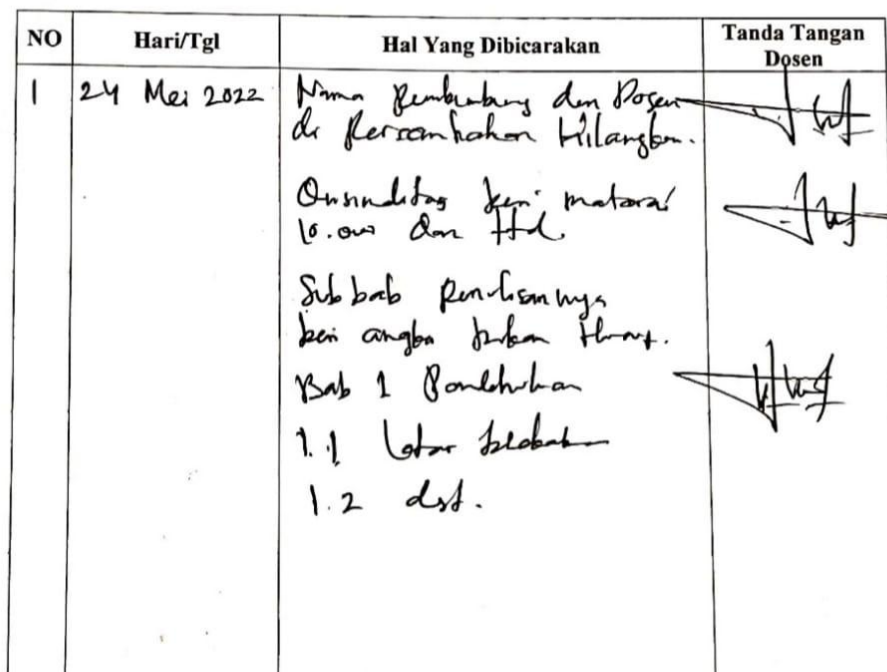 NO
Hari/Tgl
Hal Yang Dibicarakan
Tanda Tangan
Dosen
1
24 Mei 2022
Nama Pembimbing dan Dosen
di Persembahan Hilangkan.
Orisinalitas beri materai
10.000 dan ttd.
Sub bab Penulisannya
beri angka bukan huruf.
Bab 1 Pendahuluan
1.1 Latar belakang
1.2 dst.